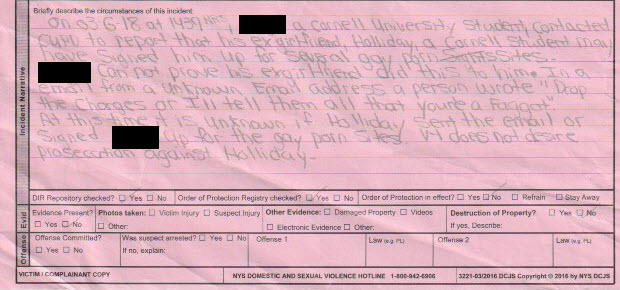 Briefly describe the circumstances of this incident:
On 03-6-18 at 1439 hrs, a Cornell University Student, contacted
CUPD to report that his exgirlfriend, Holliday, a Cornell Student may
have signed him up for several gay porn Sites.
Can not prove his exgirlfriend did this to him. In a
email from a unknown Email address a person wrote "Drop
the Charges or I'll tell them all that you're a Faggot".
At this time it is unknown if Holliday sent the email or
signed up for the gay porn sites. V1 does not desire
prosecution against Holliday.
Incident Narrative
DIR Repository checked? Yes No Order of Protection Registry checked? Yes No Order of Protection in effect? Yes No Refrain Stay Away
Evid
Evidence Present? Yes No Photos taken: Victim Injury Suspect Injury Other: Other Evidence: Damaged Property Videos Electronic Evidence Other: Destruction of Property? Yes No If yes, Describe:
Offense
Offense Committed? Yes No Was suspect arrested? Yes No If no, explain: Offense 1 Law (e.g. PL) Offense 2 Law (e.g. PL)
VICTIM / COMPLAINANT COPY NYS DOMESTIC AND SEXUAL VIOLENCE HOTLINE 1-800-942-6906 3221-03/2016 DCJS Copyright © 2016 by NYS DCJS